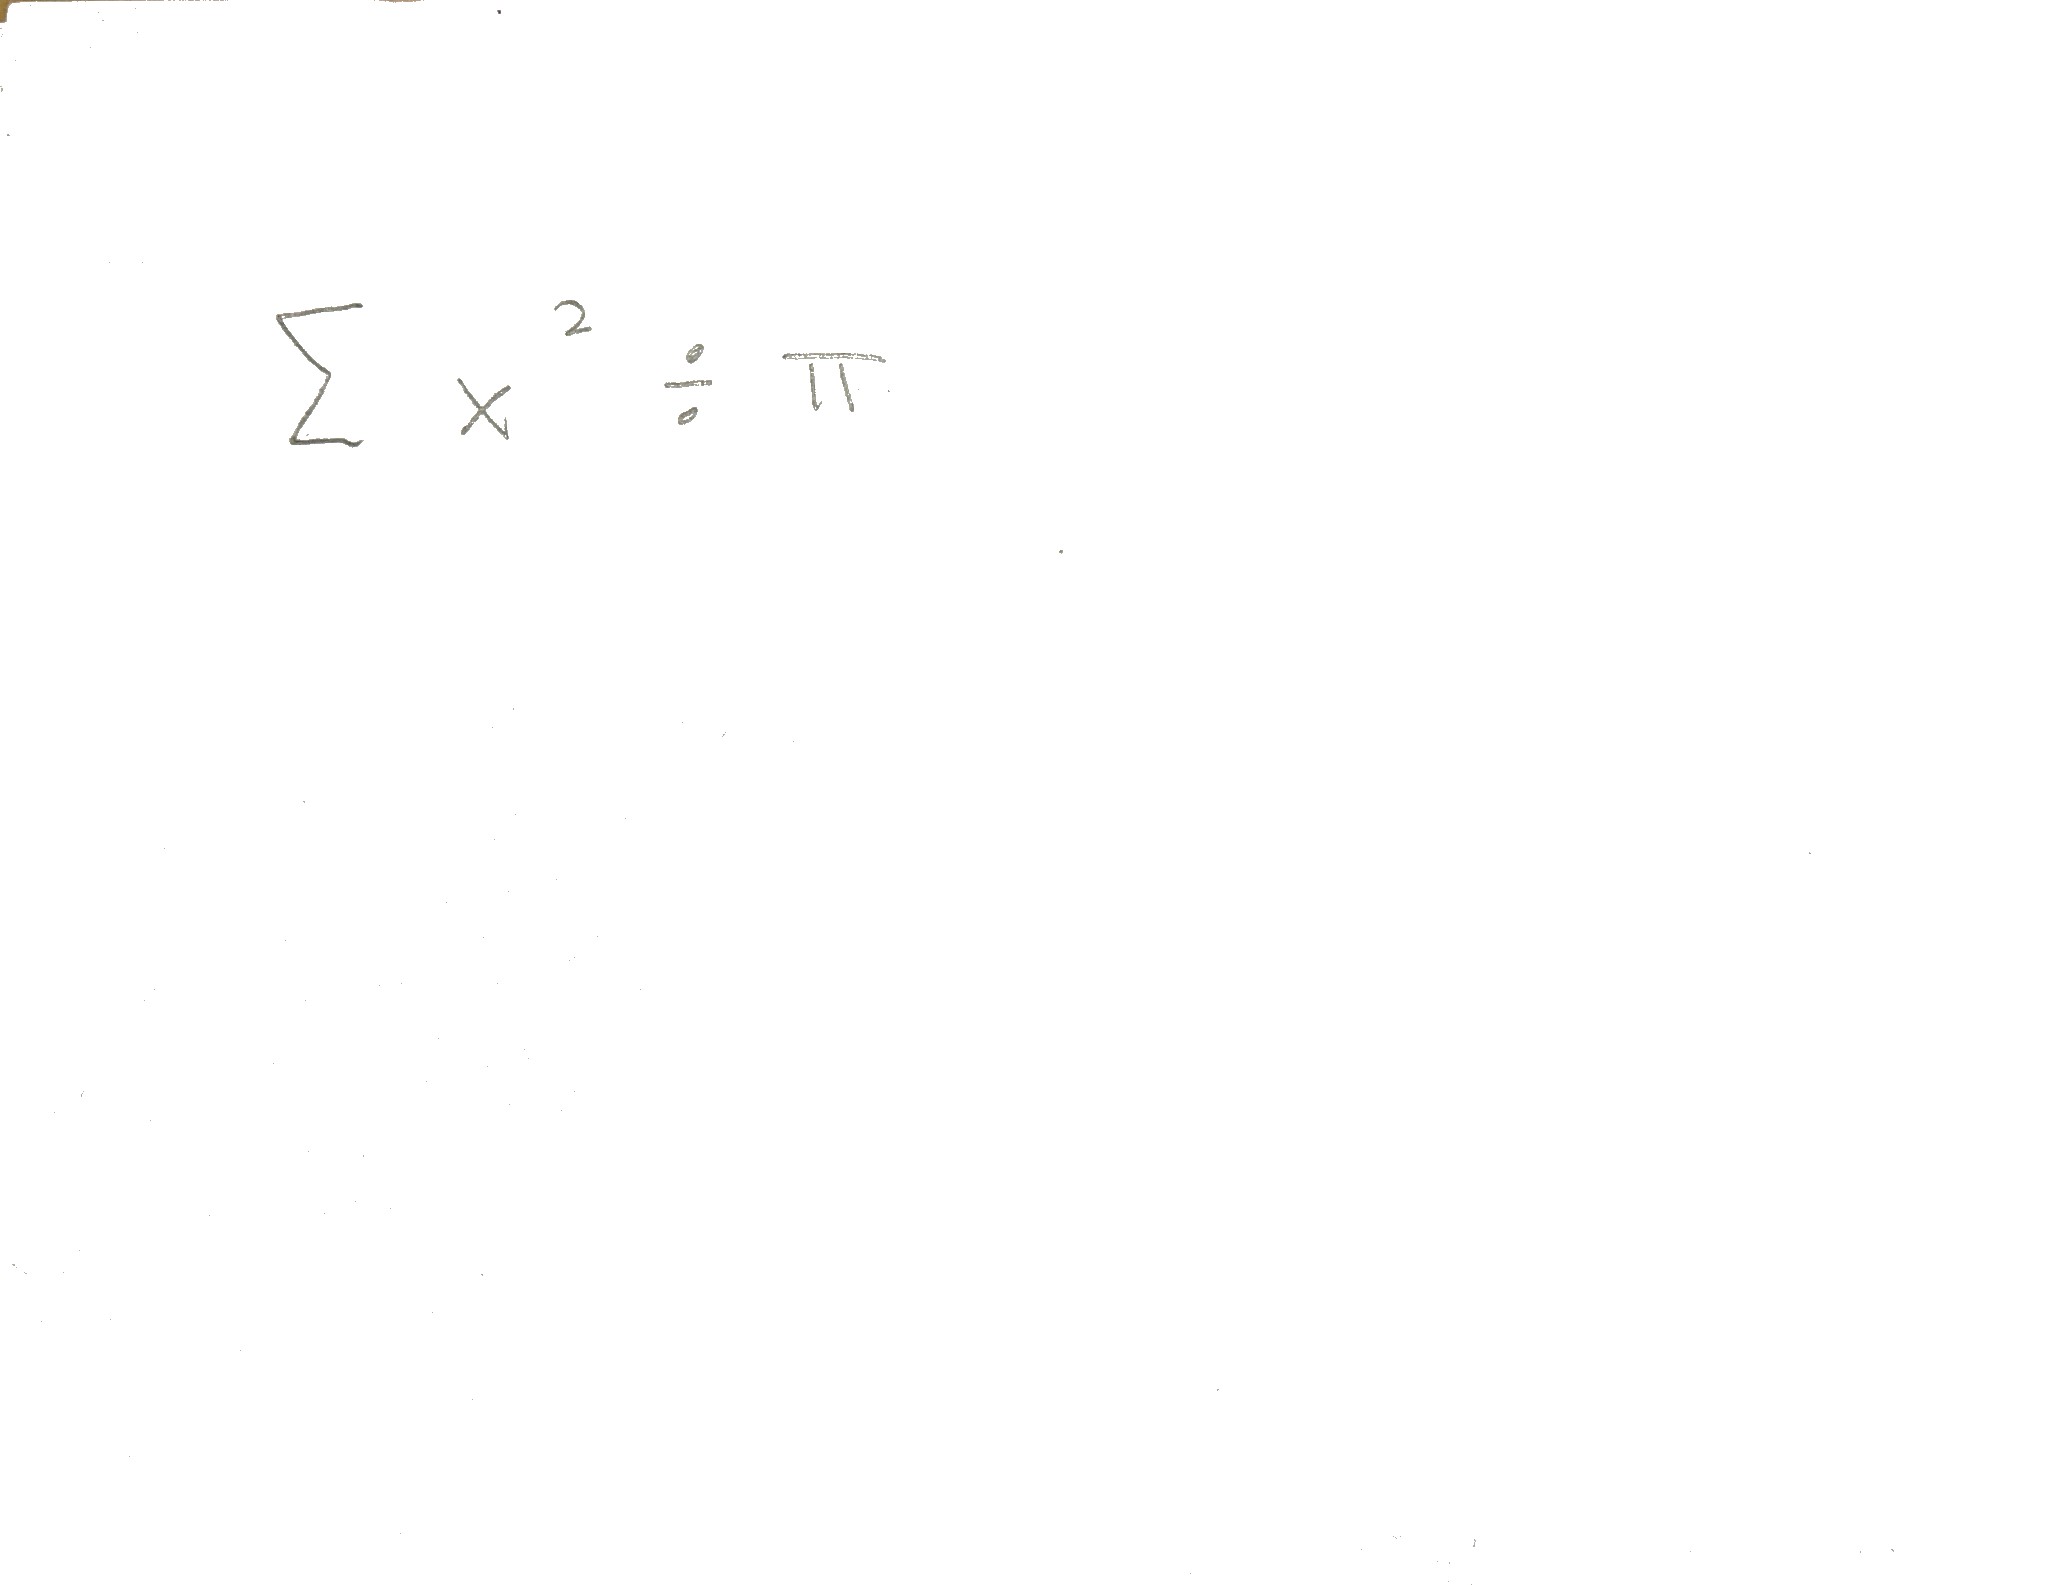 ∑ x² ÷ π